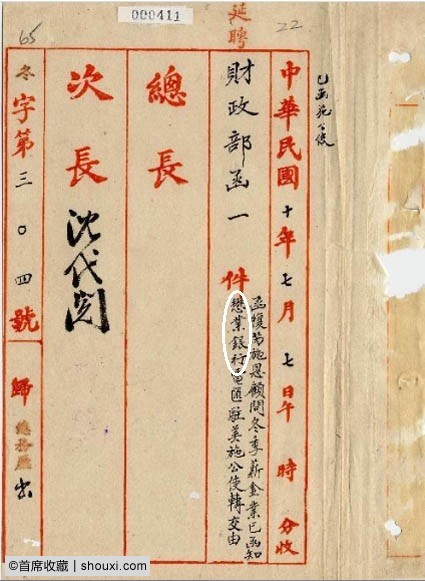 000411
延聘
22
65
中華民國十年七月七日午 時 分收
財政部函一件
函復芮施恩顧問冬季薪金業已函知
懋業銀行電匯駐美施公使轉交由
總長
次長
沈代閱
冬字第三〇四號
歸總務廳出
©首席收藏 | shouxi.com